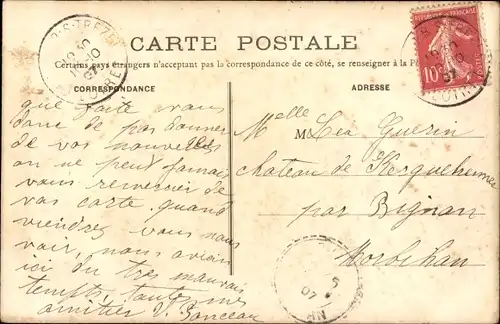 CARTE POSTALE
Certains pays étrangers n'acceptant pas la correspondance de ce côté, se renseigner à la P
CORRESPONDANCE
ADRESSE
REPUBLIQUE FRANÇAISE
10
que faite vous
donc de pas donner
de vos nouvelles
on ne peut jamais
vous remercier de
vos carte quand
viendrez vous nous
voir, nous avions
ici du tres mauvais
temps, toutes mes
amitier V.
Melle
M Lea Guerin
chateau de Kerguehennec
par Bignan
Morbihan